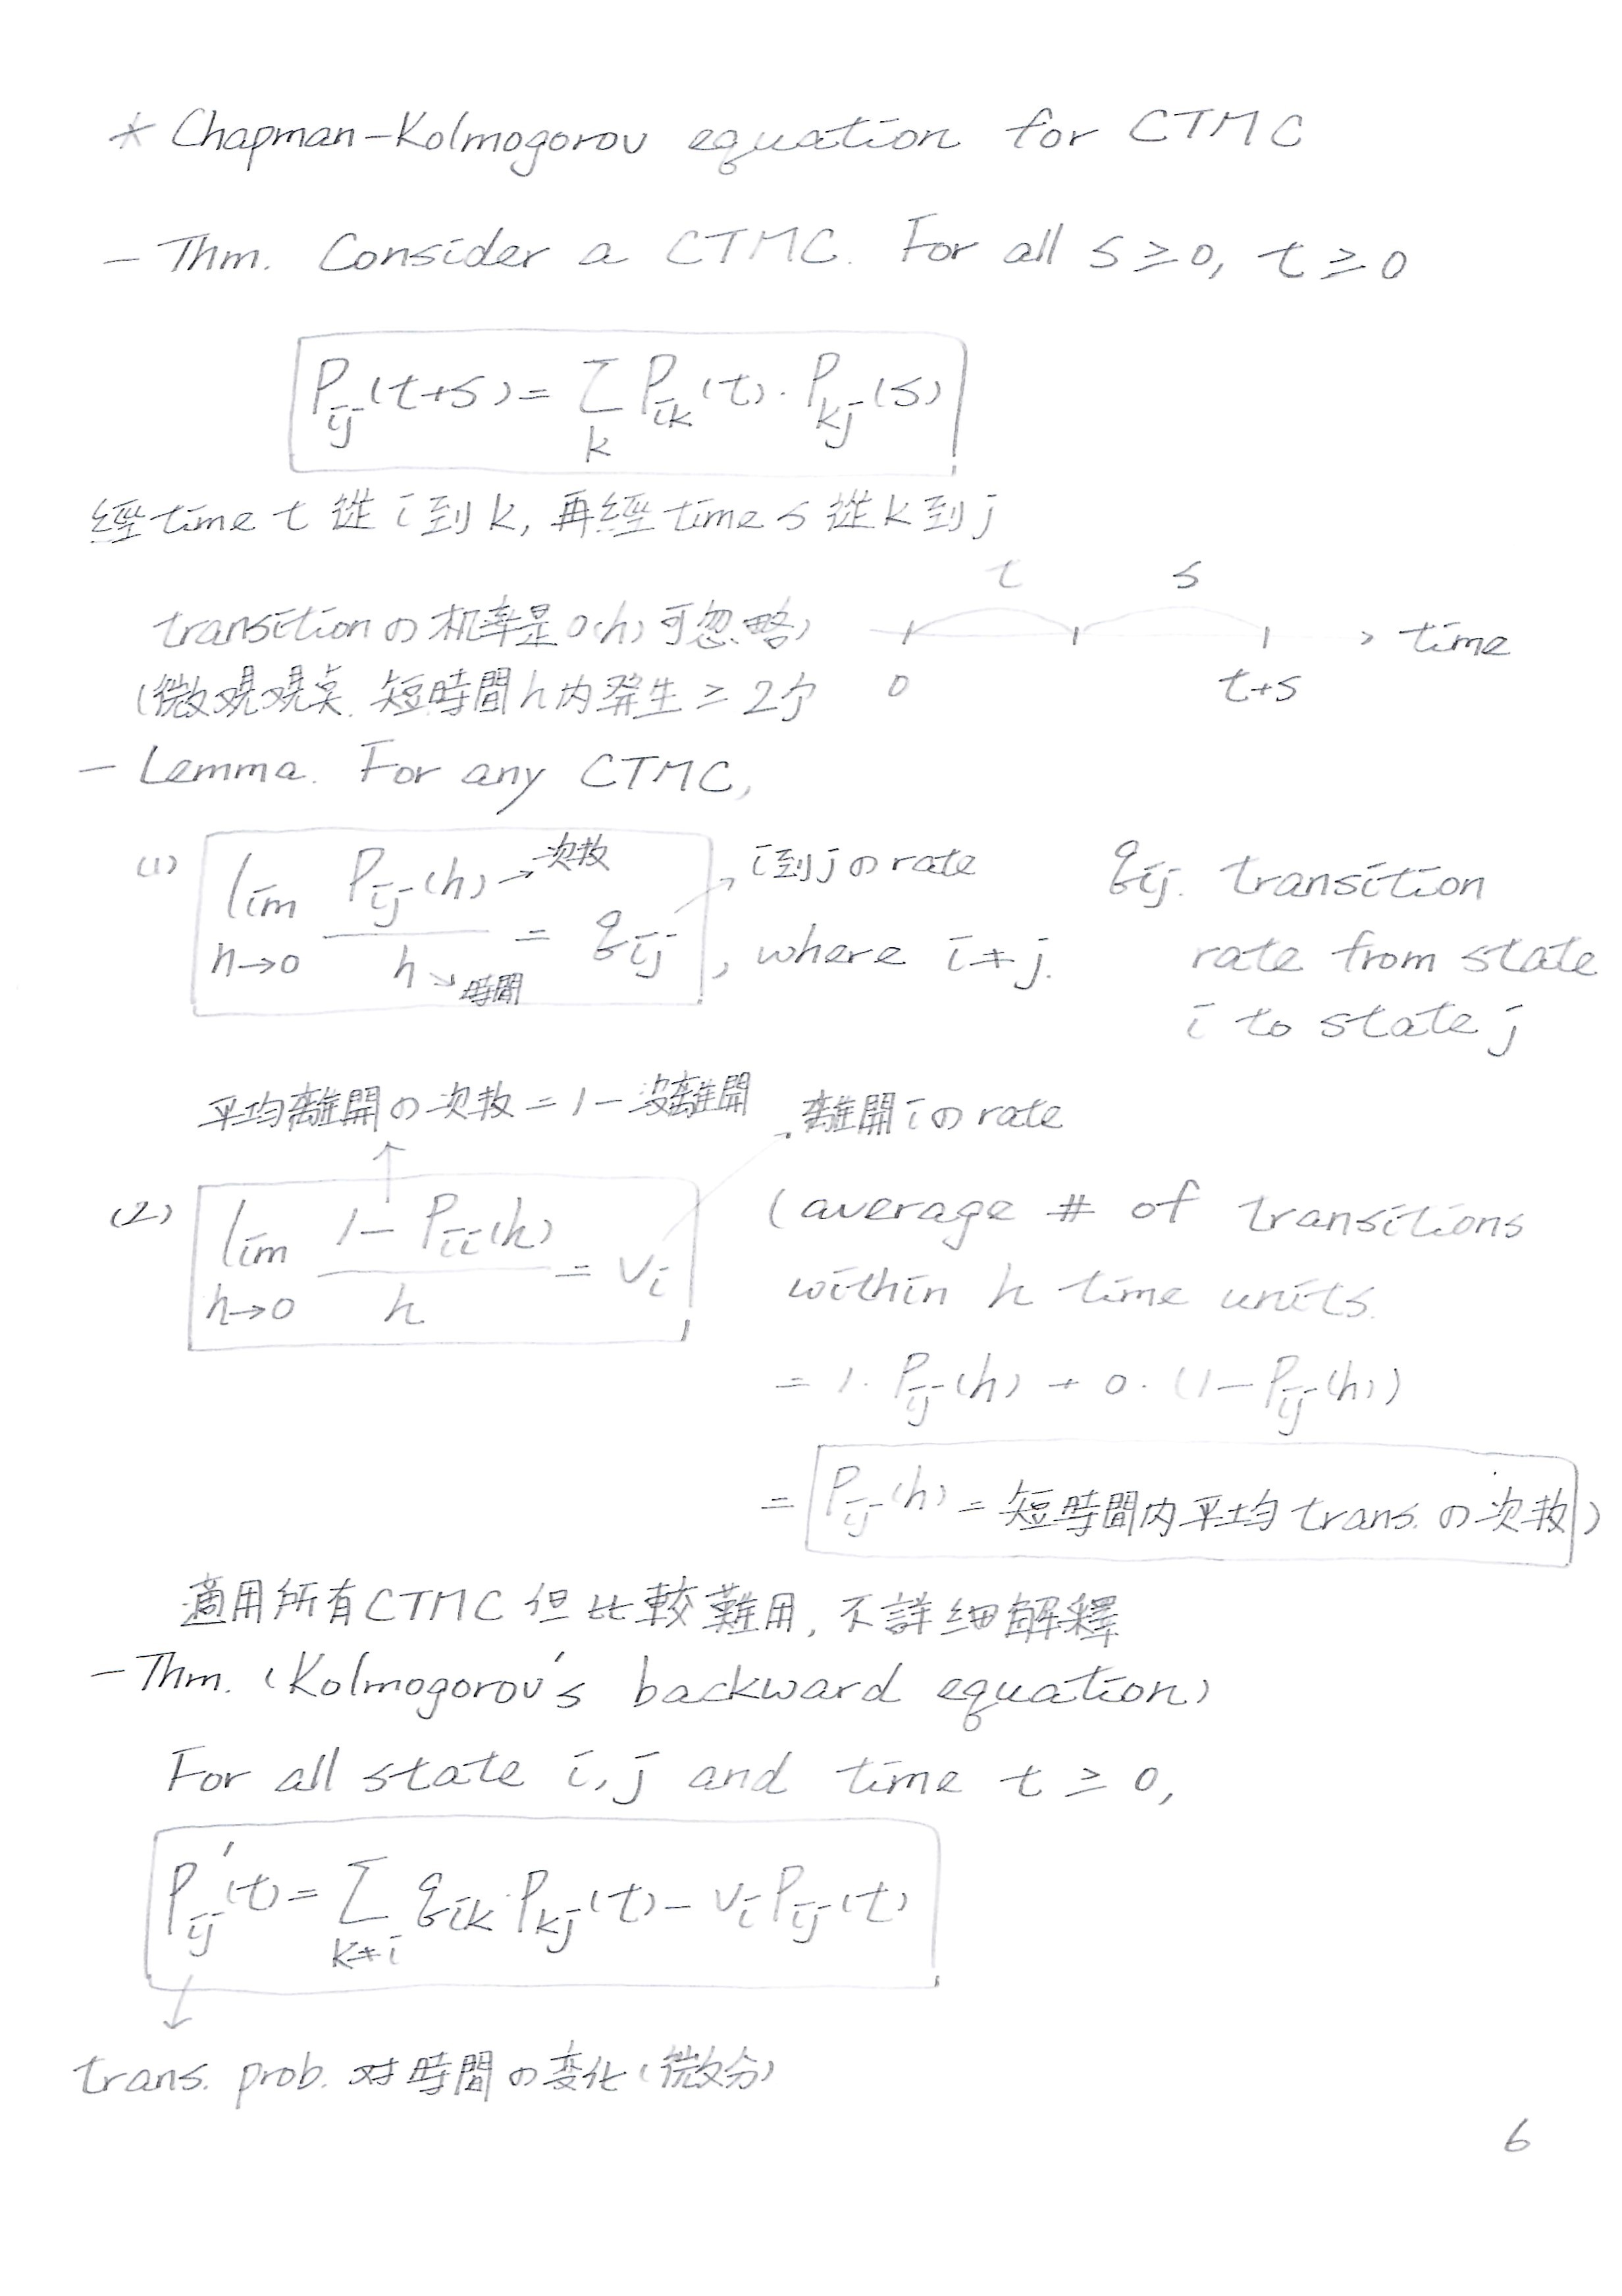 * Chapman-Kolmogorov equation for CTMC
- Thm. Consider a CTMC. For all s ≥ 0, t ≥ 0
P_ij(t+s) = Σ_k P_ik(t) · P_kj(s)
經time t 從 i 到 k, 再經time s 從 k 到 j
t s
transitionの机率是o(h)可忽略)
time
(微觀觀点. 短時間h内発生 ≥ 2个
0 t+s
- Lemma. For any CTMC,
(1) lim_{h→0} P_ij(h)/h = q_ij, where i≠j.
次数
時間
i到jのrate
q_ij. transition
rate from state
i to state j
平均離開の次数 = 1 - 沒離開
離開iのrate
(2) lim_{h→0} (1 - P_ii(h))/h = v_i
(average # of transitions
within h time units.
= 1 · P_ij(h) + 0 · (1 - P_ij(h))
= P_ij(h) = 短時間内平均trans. の次数)
適用所有CTMC但比較難用, 不詳細解釋
- Thm. (Kolmogorov's backward equation)
For all state i, j and time t ≥ 0,
P'_ij(t) = Σ_{k≠i} q_ik · P_kj(t) - v_i P_ij(t)
trans. prob. 对時間の变化(微分)
6